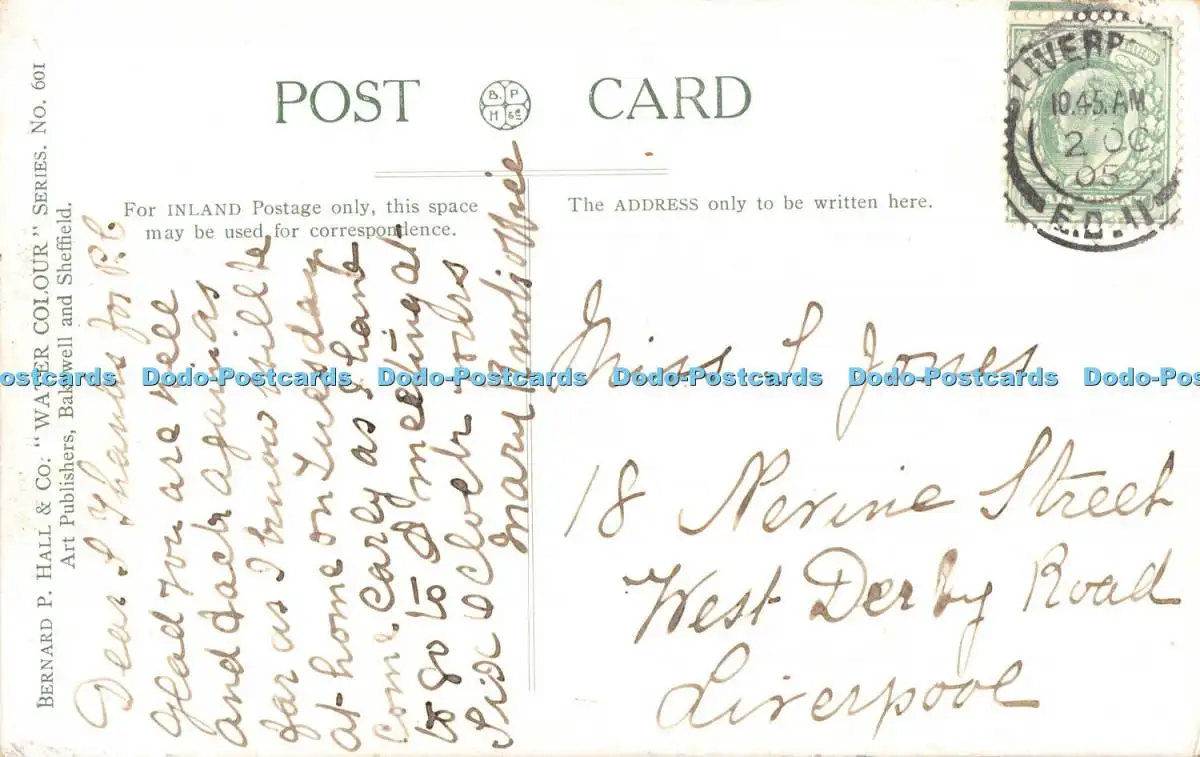 POST CARD
B. P
H &Co
For INLAND Postage only, this space
may be used for correspondence.
The ADDRESS only to be written here.
BERNARD P. HALL & CO: "WATER COLOUR" SERIES. NO. 601
Art Publishers, Bakewell and Sheffield.
LIVERP
10.45. AM
2 OC
05
E.D.
Dear I Thanks for P.C
glad you are well
and Jack again as
far as I know will be
at home on Tuesday
come Early as I have
to go to a meeting at
Six o Clock yours
Mary
Miss S Jones
18 Nevine Street
West Derby Road
Liverpool
ostcards Dodo-Postcards Dodo-Postcards Dodo-Postcards Dodo-Postcards Dodo-Pos